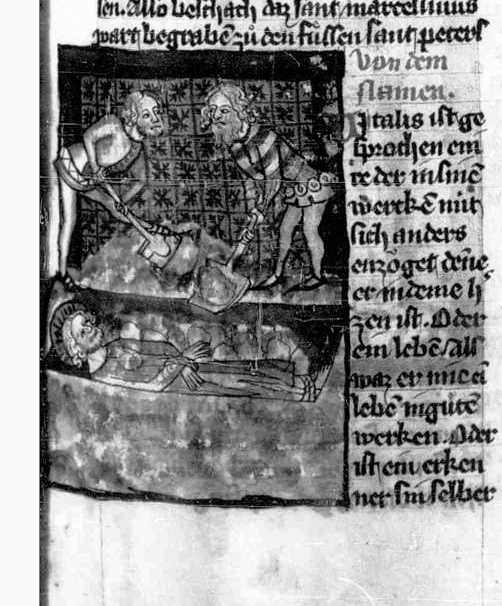 sen. Also beschach daz sant marcellinus
wart begrabē zů den fůssen sant peters
Von dem
namen.
Vitalis ist ge
sprochen ein
re der in sinē
werckē nüt
sich anders
enzöget dēne
er in deme h
zen ist. Oder
ein lebē/als
waz er nie ein
lebē in gůtē
werken. Oder
ist ein erken
ner sin selber